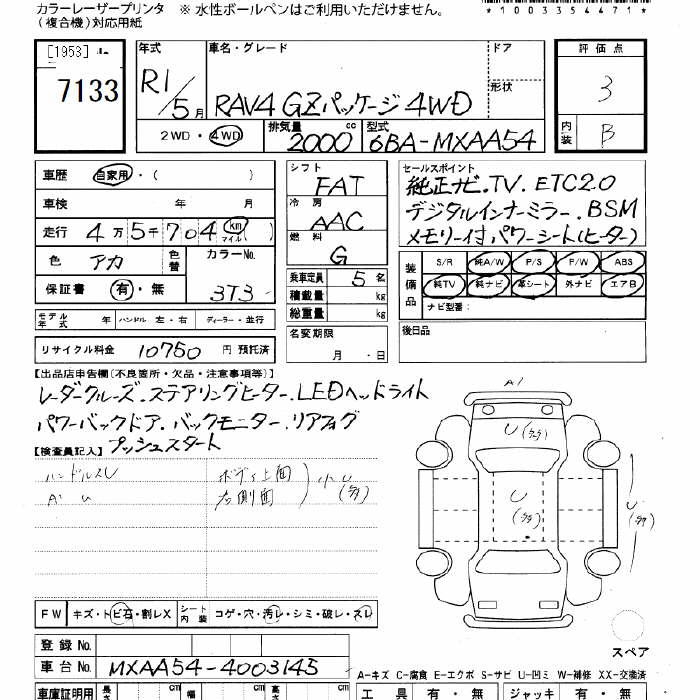 カラーレーザープリンタ ※ 水性ボールペンはご利用いただけません。
(複合機)対応用紙
*1003354471*
[1953]
7133
年式 R1/5月
車名・グレード RAV4 GZパッケージ 4WD
ドア
形状
評価点 3
内装 B
2WD・4WD 排気量 2000cc 型式 6BA-MXAA54
車歴 自家用・( )
車検 年 月
走行 4万5千704 km マイル ( )
色 アカ 色替 カラーNo. 3T3
保証書 有・無
シフト FAT
冷房 AAC
燃料 G
乗車定員 5名
積載量 kg
総重量 kg
セールスポイント
純正ナビ.TV.ETC2.0
デジタルインナーミラー.BSM
メモリー付パワーシート(ヒーター)
装備品 S/R 純A/W P/S P/W ABS
純TV 純ナビ 革シート 外ナビ エアB
ナビ型番:
モデル年式 年 ハンドル 左・右 ディーラー・並行
名変期限 月・日
後日品
リサイクル料金 10750 円 預託済
【出品店申告欄(不良箇所・欠品・注意事項等)】
レーダークルーズ.ステアリングヒーター.LEDヘッドライト
パワーバックドア.バックモニター.リアフォグ
プッシュスタート
【検査員記入】
ハンドルスレ ボディ上面
右側面 小U
A1
U
U
U
FW キズ・トビ石・割レX シート内装 コゲ・穴・汚レ・シミ・破レ・スレ
スペア
登録No.
車台No. MXAA54-4003145
A-キズ C-腐食 E-エクボ S-サビ U-凹ミ W-補修 XX-交換済
車庫証明用 長さ cm 幅 cm 高さ cm 工具 有・無 ジャッキ 有・無